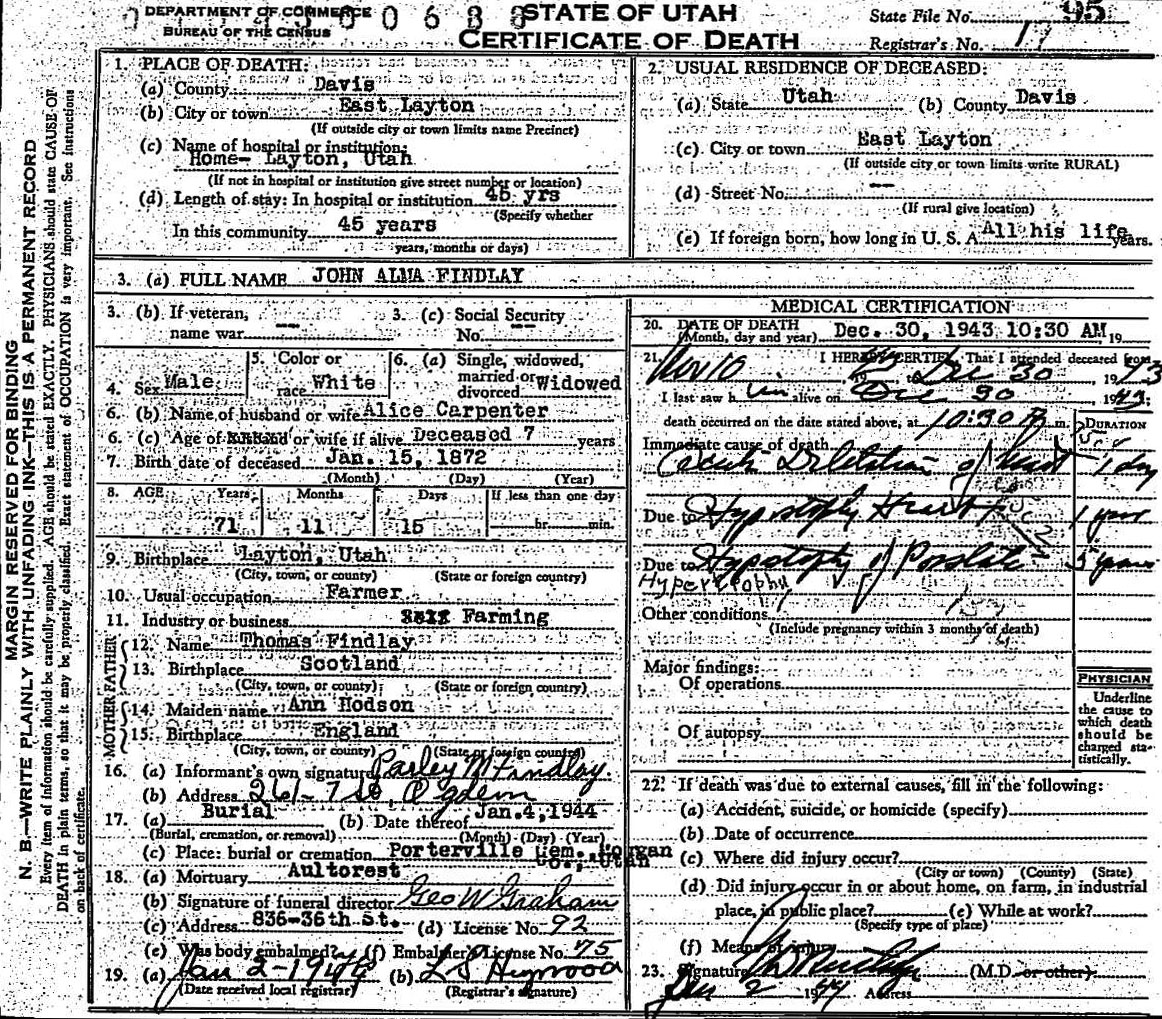 DEPARTMENT OF COMMERCE
BUREAU OF THE CENSUS
STATE OF UTAH
CERTIFICATE OF DEATH
State File No. 95
Registrar's No. 17
MARGIN RESERVED FOR BINDING
N. B.—WRITE PLAINLY WITH UNFADING INK—THIS IS A PERMANENT RECORD
Every item of information should be carefully supplied. AGE should be stated EXACTLY. PHYSICIANS should state CAUSE OF
DEATH in plain terms, so that it may be properly classified. Exact statement of OCCUPATION is very important. See instructions
on back of certificate.
1. PLACE OF DEATH:
(a) County Davis
(b) City or town East Layton
(If outside city or town limits name Precinct)
(c) Name of hospital or institution:
Home- Layton, Utah
(If not in hospital or institution give street number or location)
(d) Length of stay: In hospital or institution 45 yrs
(Specify whether
In this community 45 years
years, months or days)
2. USUAL RESIDENCE OF DECEASED:
(a) State Utah (b) County Davis
(c) City or town East Layton
(If outside city or town limits write RURAL)
(d) Street No. --
(If rural give location)
(e) If foreign born, how long in U. S. A. All his life years.
3. (a) FULL NAME JOHN ALMA FINDLAY
3. (b) If veteran, name war -- 3. (c) Social Security No. --
4. Sex Male 5. Color or race White 6. (a) Single, widowed, married or divorced Widowed
6. (b) Name of husband or wife Alice Carpenter
6. (c) Age of husband or wife if alive Deceased 7 years
7. Birth date of deceased Jan. 15, 1872
(Month) (Day) (Year)
8. AGE Years Months Days If less than one day
71 11 15 hr. min.
9. Birthplace Layton, Utah
(City, town, or county) (State or foreign country)
10. Usual occupation Farmer
11. Industry or business Farming
FATHER
12. Name Thomas Findlay
13. Birthplace Scotland
(City, town, or county) (State or foreign country)
MOTHER
14. Maiden name Ann Hodson
15. Birthplace England
(City, town, or county) (State or foreign country)
16. (a) Informant's own signature Parley M Findlay
(b) Address 261-7 St, Ogden
17. (a) Burial (b) Date thereof Jan.4,1944
(Burial, cremation, or removal) (Month) (Day) (Year)
(c) Place: burial or cremation Porterville Cem. Morgan
Co., Utah
18. (a) Mortuary Aultorest
(b) Signature of funeral director Geo W Graham
(c) Address 836-36th St. (d) License No. 92
(e) Was body embalmed? (f) Embalmer License No. 75
19. (a) Jan 2-1944 (b) Heywood
(Date received local registrar) (Registrar's signature)
MEDICAL CERTIFICATION
20. DATE OF DEATH Dec. 30, 1943 10:30 AM, 19
(Month, day and year)
21. I HEREBY CERTIFY, That I attended deceased from
Nov 10 19 to Dec 30 1943
I last saw him alive on Dec 30 1943;
death occurred on the date stated above, at 10:30 m. DURATION
Immediate cause of death
Acute Dilatation of heart 1 day
Due to Hypotrophy Heart 1 year
Due to Hypotrophy of Prostate 5 years
Hypertrophy
Other conditions
(Include pregnancy within 3 months of death)
Major findings:
Of operations
Of autopsy
PHYSICIAN
Underline
the cause to
which death
should be
charged sta-
tistically.
22. If death was due to external causes, fill in the following:
(a) Accident, suicide, or homicide (specify)
(b) Date of occurrence
(c) Where did injury occur?
(City or town) (County) (State)
(d) Did injury occur in or about home, on farm, in industrial
place, in public place? (e) While at work?
(Specify type of place)
(f) Means of injury
23. Signature (M.D. or other)
Jan 2 1944 Address